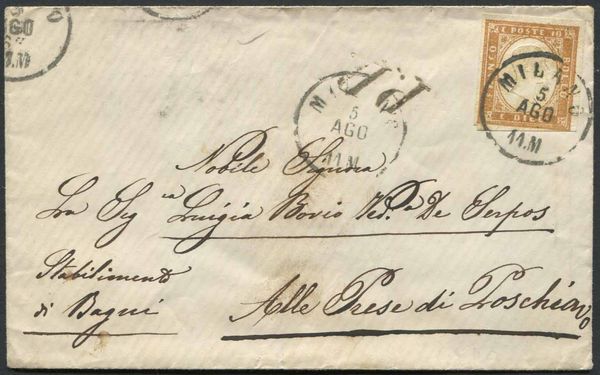 AGO
11.M
PD
MILANO
5
AGO
11.M
E POSTE 10
FRANCO
BOLLO
MILANO
5
AGO
11.M
Nobile Signora
La Sig.ra Luigia Bovio Ved.a De Serpos
Stabilimento
di Bagni
Alle Prese di Poschiavo